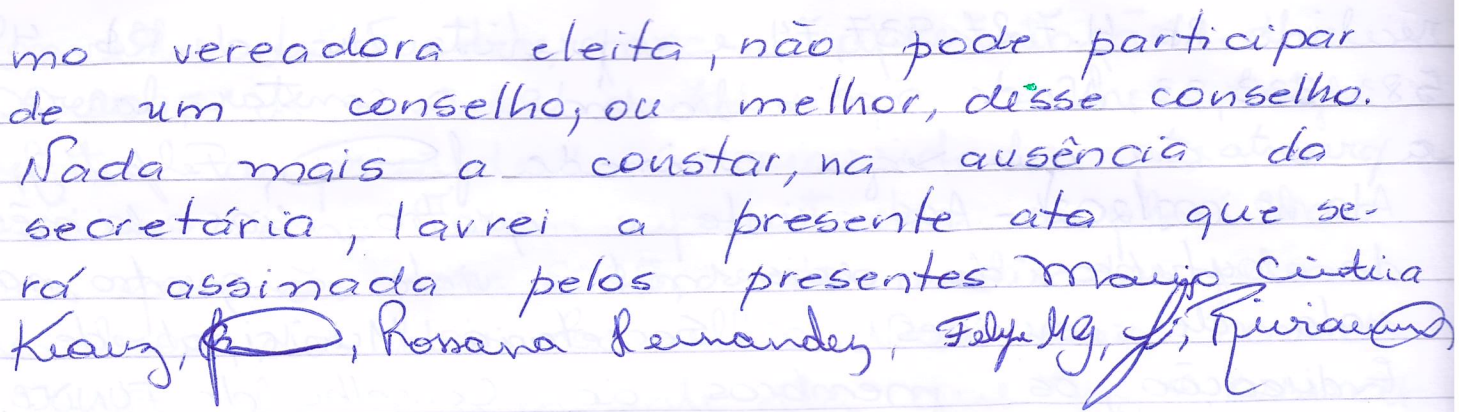 mo vereadora eleita, não pode participar
de um conselho, ou melhor, desse conselho.
Nada mais a constar, na ausência da
secretária, lavrei a presente ata que se-
rá assinada pelos presentes
Rossana Fernandez, Felipe MG,